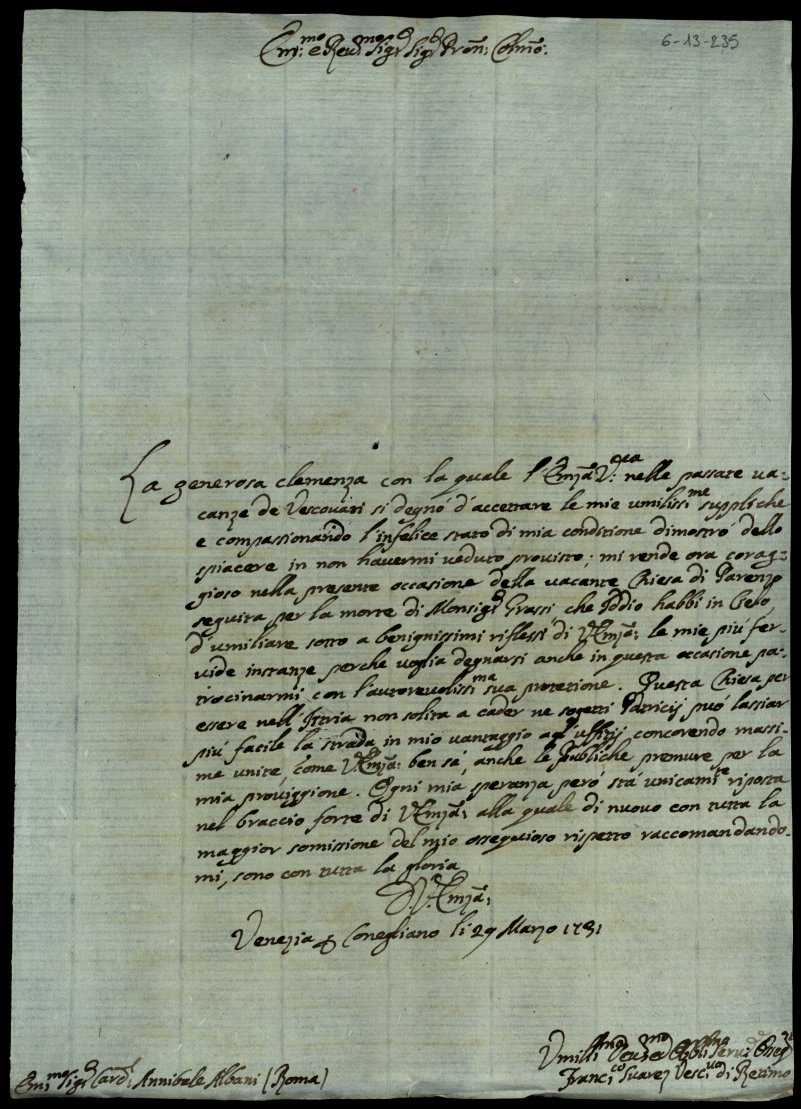 Em:mo e Rev:mo Sigr Sigr Pron: Colmo:
6-13-235
La generosa clemenza con la quale l'Emza V:ra nelle passate va:
canze de Vescovati si degnó d'accettare le mie umilissime suppliche
e compassionando l'infelice stato di mia conditione dimostró dello
spiacere in non havermi veduto provisto; mi rende ora corag:
gioso nella presente occasione della vacante Chiesa di Parenzo
seguita per la morte di Monsigr Grassi, che Iddio habbi in Cielo,
d'umiliare sotto a benignissimi riflessi di V:Emza: le mie piú fer:
vide instanze perche voglia degnarsi anche in questa occasione pa:
trocinarmi con l'autorevolissima sua protetione. Questa Chiesa per
essere nell'Istria non solita a cader ne sogetti Patricij puó lassiar
piú facile la strada in mio vantaggio agl'uffitij, concorendo massi:
me unite, come V:Emza: ben sá, anche le publiche premure per la
mia proviggione. Ogni mia speranza però stá unicamte riposta
nel braccio forte di V:Emza: alla quale di nuovo con tutta la
maggior somissione del mio ossequioso rispetto raccomandando:
mi, sono con tutta la gloria
D. V: Emza:
Venezia Conegliano li 29 Marzo 1731
Umilmo Devmo Obblmo Servre Osseqmo
Franc:co Suarez Vesc:vo di Retimo
Emi:mo Sigr Card: Annibale Albani (Roma)